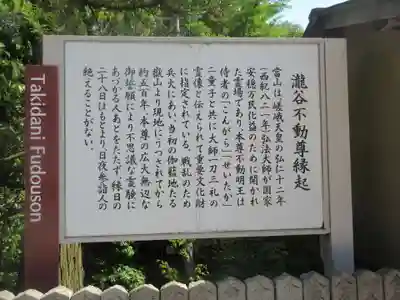 瀧谷不動尊縁起
当山は嵯峨天皇の弘仁十二年
(西紀八二一年)弘法大師が国家
安穏万民化益のために開かれ
た霊場であり、本尊不動明王は
侍者の「こんがら」「せいたか」
二童子と共に大師一刀三礼の
霊像と伝えられて重要文化財
に指定されている。戦乱のため
兵火にあい、当初の伽藍地たる
嶽山より現地にうつされてから
約五百年、本尊の広大無辺な
御誓願により不思議な霊験に
あづかる人あとをたたず、縁日の
二十八日はもとより、日夜参詣人の
絶えることがない。
Takidani Fudouson